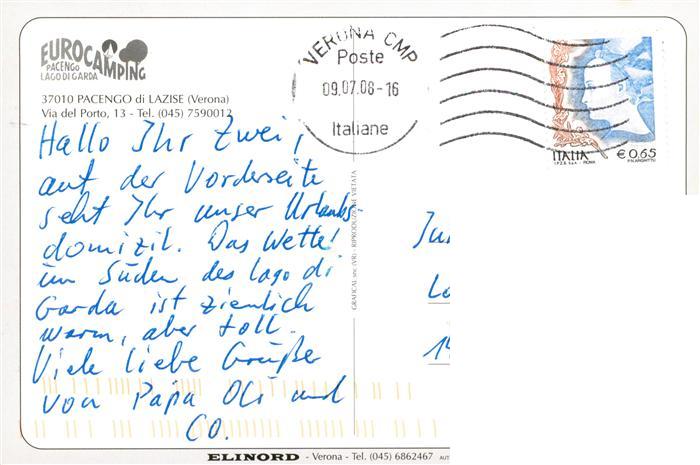 EUROCAMPING
PACENGO
LAGO DI GARDA
37010 PACENGO di LAZISE (Verona)
Via del Porto, 13 - Tel. (045) 7590012
VERONA CMP
Poste
09.07.08-16
Italiane
ITALIA € 0,65
I.P.Z.S. S.p.A. - ROMA
Hallo Ihr Zwei,
auf der Vorderseite
seht Ihr unser Urlaubs-
domizil. Das Wetter
im Süden des Lago di
Garda ist ziemlich
warm, aber toll.
Viele liebe Grüße
von Papa Oli und
CO.
GRAFICAL snc (VR) - RIPRODUZIONE VIETATA
ELINORD - Verona - Tel. (045) 6862467